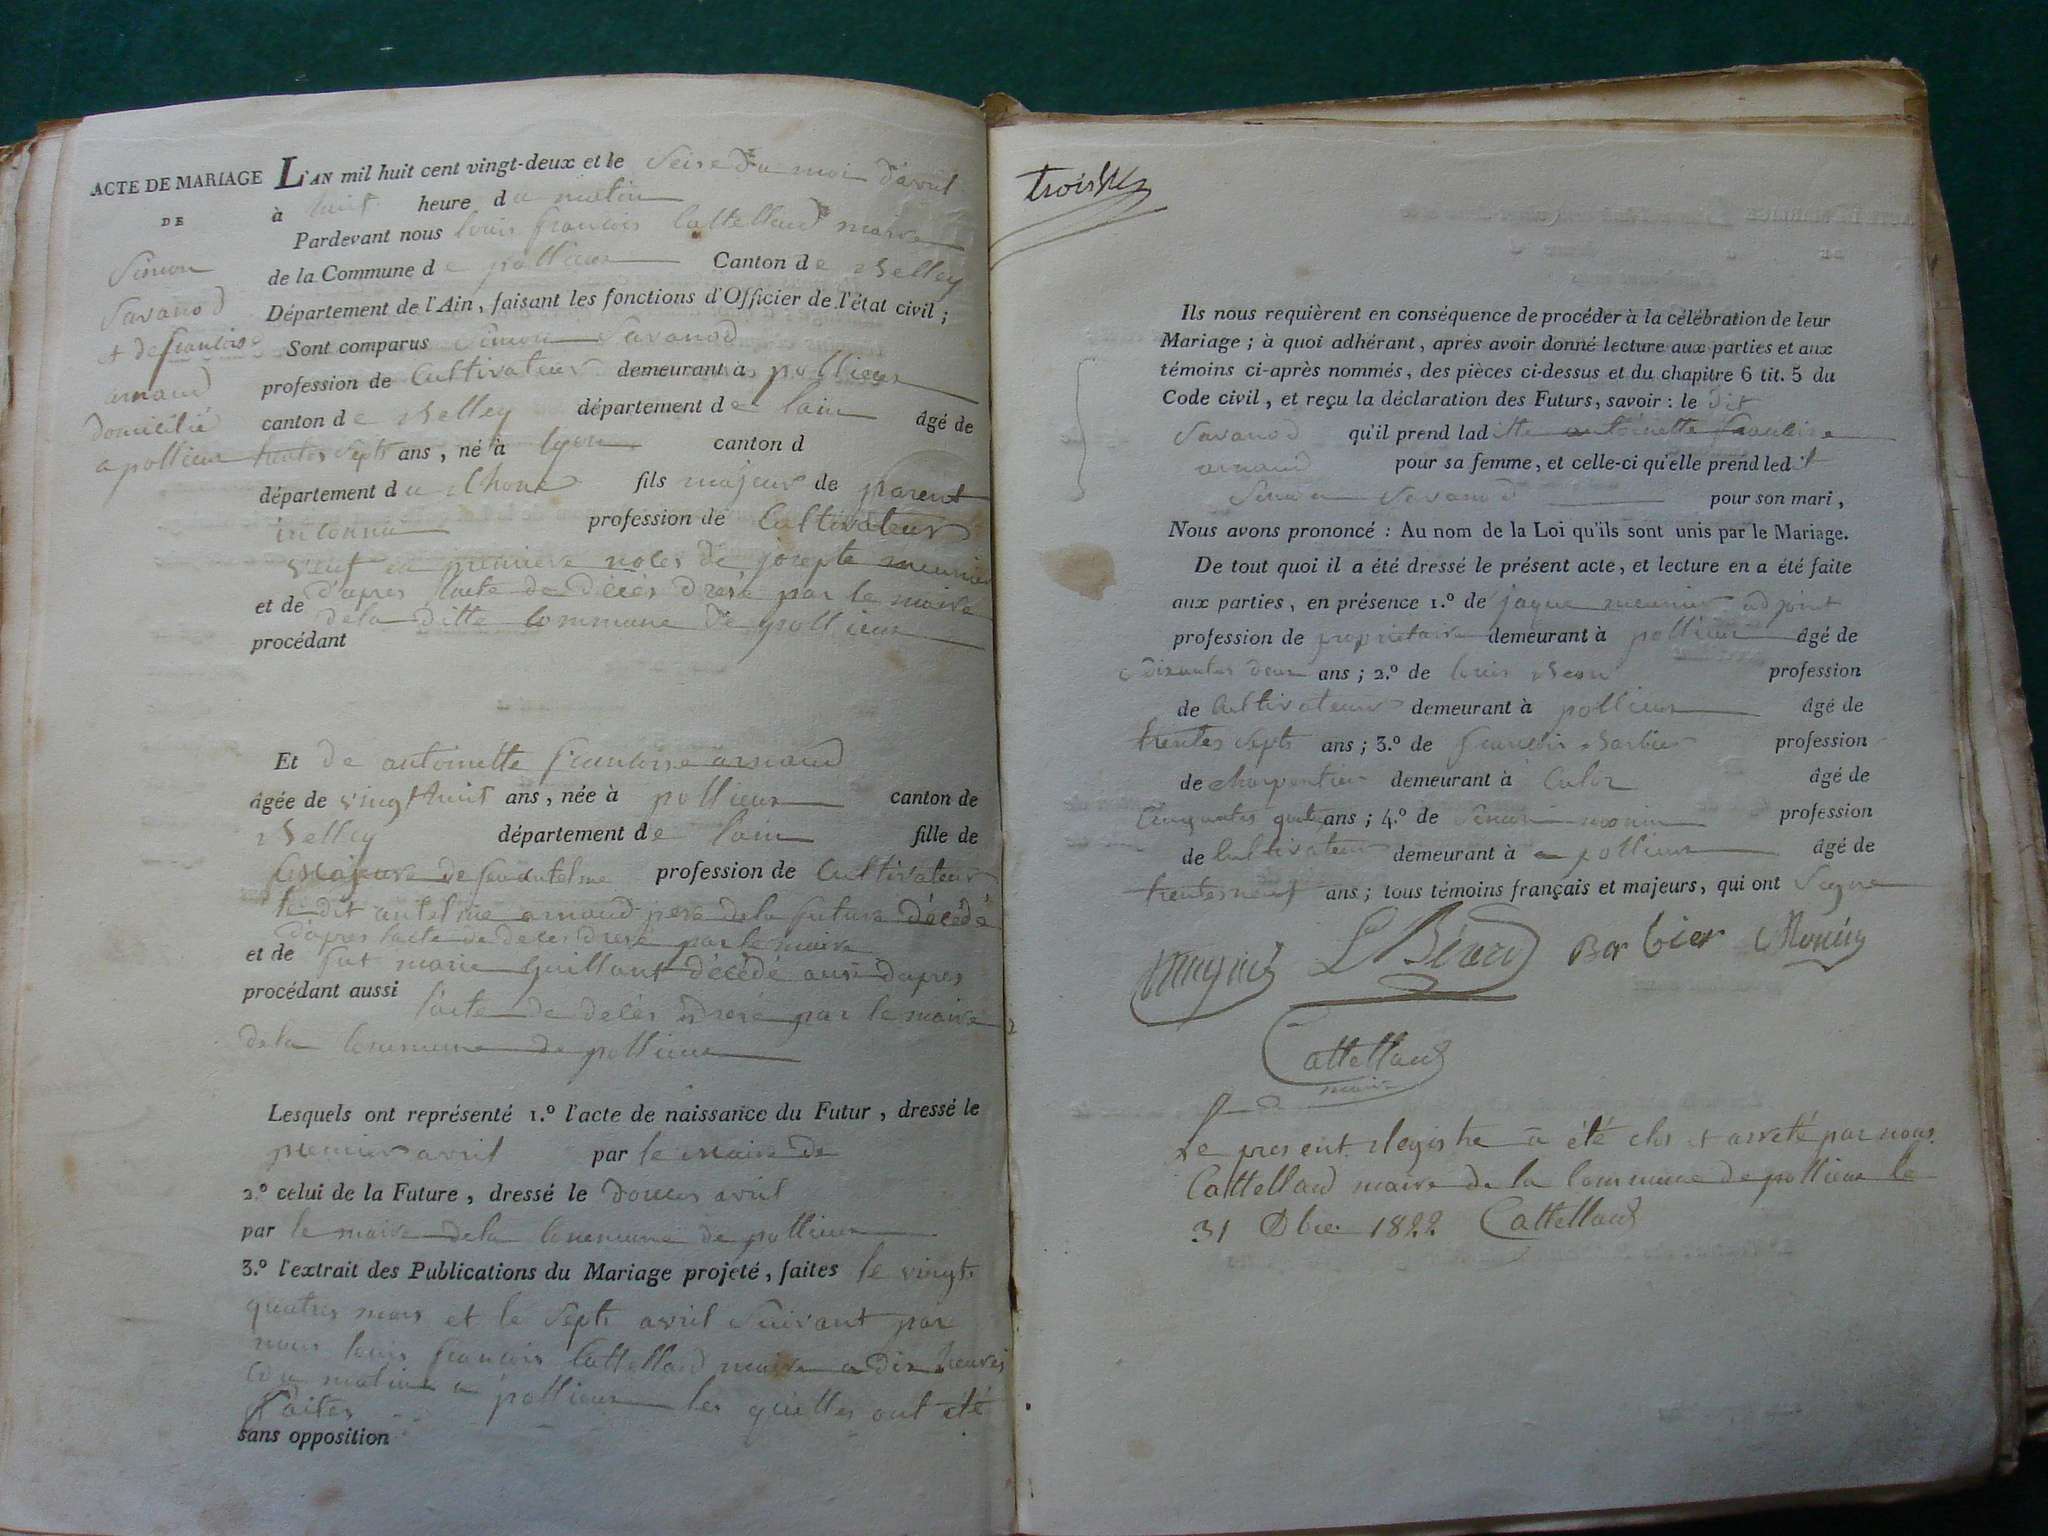 ACTE DE MARIAGE
DE
Simon
Savanod
et de francoise
arnaud
domicilié
a pollieu
L'AN mil huit cent vingt-deux et le Seise du moi d'avril
à huit heure du matin
Pardevant nous louis francois Cattelland maire
de la Commune de pollieu Canton de Belley
Département de l'Ain, faisant les fonctions d'Officier de l'état civil;
Sont comparus Simon Savanod
profession de Cultivateur demeurant à pollieu
canton de Belley département de lain âgé de
trentes septs ans, né à lyon canton d
département du Rhone fils majeur de parent
inconnu profession de Cultivateur
veuf en premiere noces de josepte meunier
d'apres lacte de décès dresé par le maire
et de dela ditte commune de pollieu
procédant
Et de antoinette francoise arnaud
âgée de vingt huit ans, née à pollieu canton de
Belley département de lain fille de
majeure de feu antelme profession de Cultivateur
le dit antelme arnaud pere de la future décédé
dapres lacte de deces dresé par le maire
et de fut marie guillant décédé ausi dapres
procédant aussi lacte de décès dresé par le maire
dela commune de pollieu
Lesquels ont représenté 1.º l'acte de naissance du Futur, dressé le
premier avril par le maire de
2.º celui de la Future, dressé le douces avril
par le maire dela commune de pollieu
3.º l'extrait des Publications du Mariage projeté, faites le vingt
quatres mars et le septs avril suivant par
nous louis francois Cattelland maire a dix heures
du matin a pollieu les quelles ont été
faites
sans opposition
trois
Ils nous requièrent en conséquence de procéder à la célébration de leur
Mariage; à quoi adhérant, après avoir donné lecture aux parties et aux
témoins ci-après nommés, des pièces ci-dessus et du chapitre 6 tit. 5 du
Code civil, et reçu la déclaration des Futurs, savoir: le dit
Savanod qu'il prend laditte antoinette francoise
arnaud pour sa femme, et celle-ci qu'elle prend ledit
Simon Savanod pour son mari,
Nous avons prononcé: Au nom de la Loi qu'ils sont unis par le Mariage.
De tout quoi il a été dressé le présent acte, et lecture en a été faite
aux parties, en présence 1.º de jaque meunier adjoint
profession de propriétaire demeurant à pollieu âgé de
soixantes deux ans; 2.º de louis profession
de Cultivateur demeurant à pollieu âgé de
trentes septs ans; 3.º de francois Barbier profession
de charpentier demeurant à Culoz âgé de
Cinquantes quatre ans; 4.º de Simon monin profession
de Cultivateur demeurant à a pollieu âgé de
trentes neuf ans; tous témoins français et majeurs, qui ont Signe
Barbier Monin
Cattelland
maire
Le present Registre a été clos et arreté par nous
Cattelland maire de la Commune de pollieu le
31 Xbre 1822 Cattelland